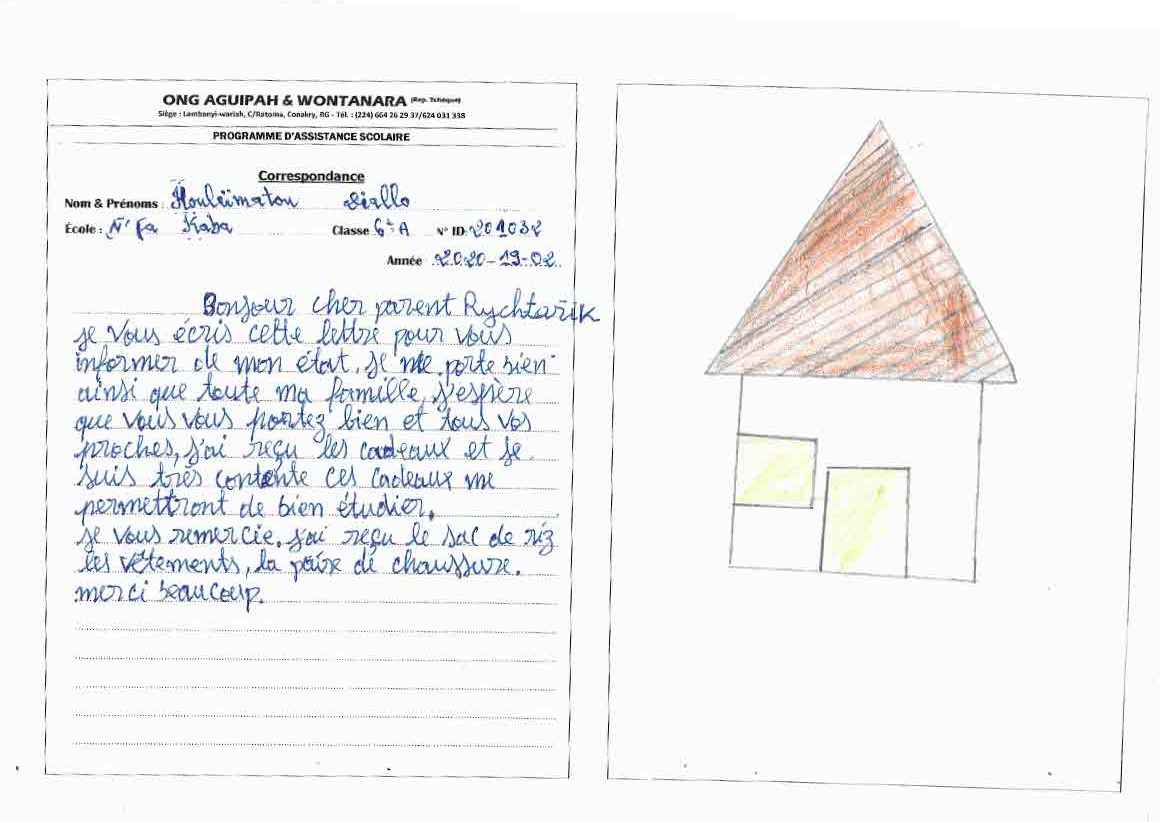 ONG AGUIPAH & WONTANARA (Rep. Tchèque)
Siège : Lambanyi-wariah, C/Ratoma, Conakry, RG - Tél. : (224) 664 26 29 37/624 031 338
PROGRAMME D'ASSISTANCE SCOLAIRE
Correspondance
Nom & Prénoms : Houleïmatou Diallo
École : N'Fa Kaba Classe 6è A N° ID 201032
Année 2020-19-02
Bonjour cher parent Rychtařik
je vous écris cette lettre pour vous
informer de mon état. je me porte bien
ainsi que toute ma famille, j'espère
que vous vous portez bien et tous vos
proches, j'ai reçu les cadeaux et je
suis très contente ces cadeaux me
permettront de bien étudier.
je vous remercie. j'ai reçu le sac de riz
les vêtements, la paire de chaussure.
merci beaucoup.